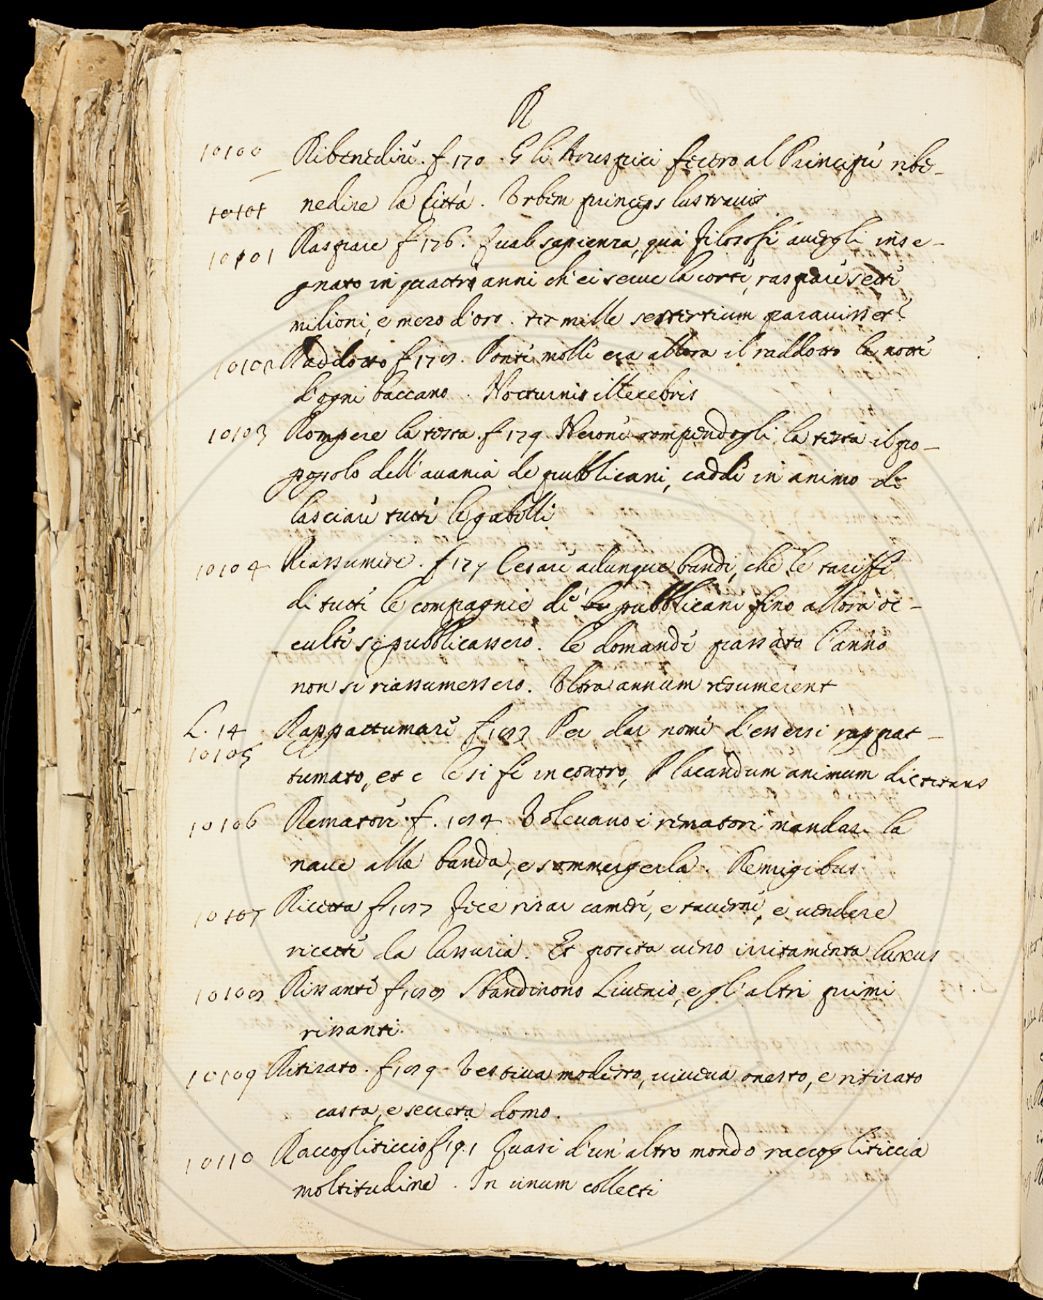 R
10100 Ribenedire. f. 170. Gli Aruspici fecero al Principe ribe-
10101 nedire la Città. Urbem princeps lustravit
10101 Raspare f 176. Qual sapienza, qua filosofi avergli inse-
gnato in quactro anni ch'ei serve la corte, raspare sette
milioni, e mezo d'oro. ter mille sestertium paravisset?
10102 Raddotto f 178. Ponte molle era allora il raddotto le notti
d'ogni baccano. Nocturnis illecebris
10103 Rompere la testa. f 179. Nerone rompendogli la testa il po-
popolo dell'avania de pubblicani, cadde in animo di
lasciare tutte le gabelle
10104 Riassumere. f 177 Cesare adunque bandì, che le tariffe
di tutte le compagnie de pubblicani fino allora oc-
culte si pubblicassero. le domande passato l'anno
non si riassumessero. Ultra annum resumerent
L. 14
10105 Rappattumare f 183 Per dar nome d'essersi rappat-
tumato, et e le si fe incontro, Placandum animum dictitans
10106 Rematore f. 184 Volevano i rematori mandar la
nave alla banda, e sommergerla. Remigibus
10107 Ricetta f 187 fece rizar camere, e taverne, e vendere
ricette da lussuria. Et posita veno irritamenta luxus
10108 Rissante f 188 Sbandirono Livenio, e gl'altri primi
rissanti.
10109 Ritirato. f 189. Vestiva modesto, viveva onesto, e ritirato
casta, e secreta domo.
10110 Raccogliticcio f 191 Quasi d'un'altro mondo raccogliticcia
moltitudine. In unum collecti